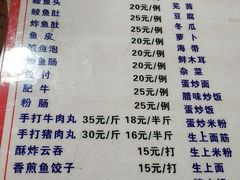 鳗鱼头 20元/例
鳗鱼肚 25元/例
炸鱼肚 20元/例
鱼皮 25元/例
鱼饱 25元/例
肥牛 25元/例
粉肠 25元/例
手打牛肉丸 35元/斤 18元/半斤
手打猪肉丸 30元/斤 16元/半斤
酥炸云吞 15元/打
香煎鱼饺子 15元/打
芫茜
豆腐
冬瓜
萝卜
海带
鲜木耳
杂菜
蛋炒面
腊味炒饭
蛋炒饭
蛋炒米粉
生上面筋
生上米粉
生上面